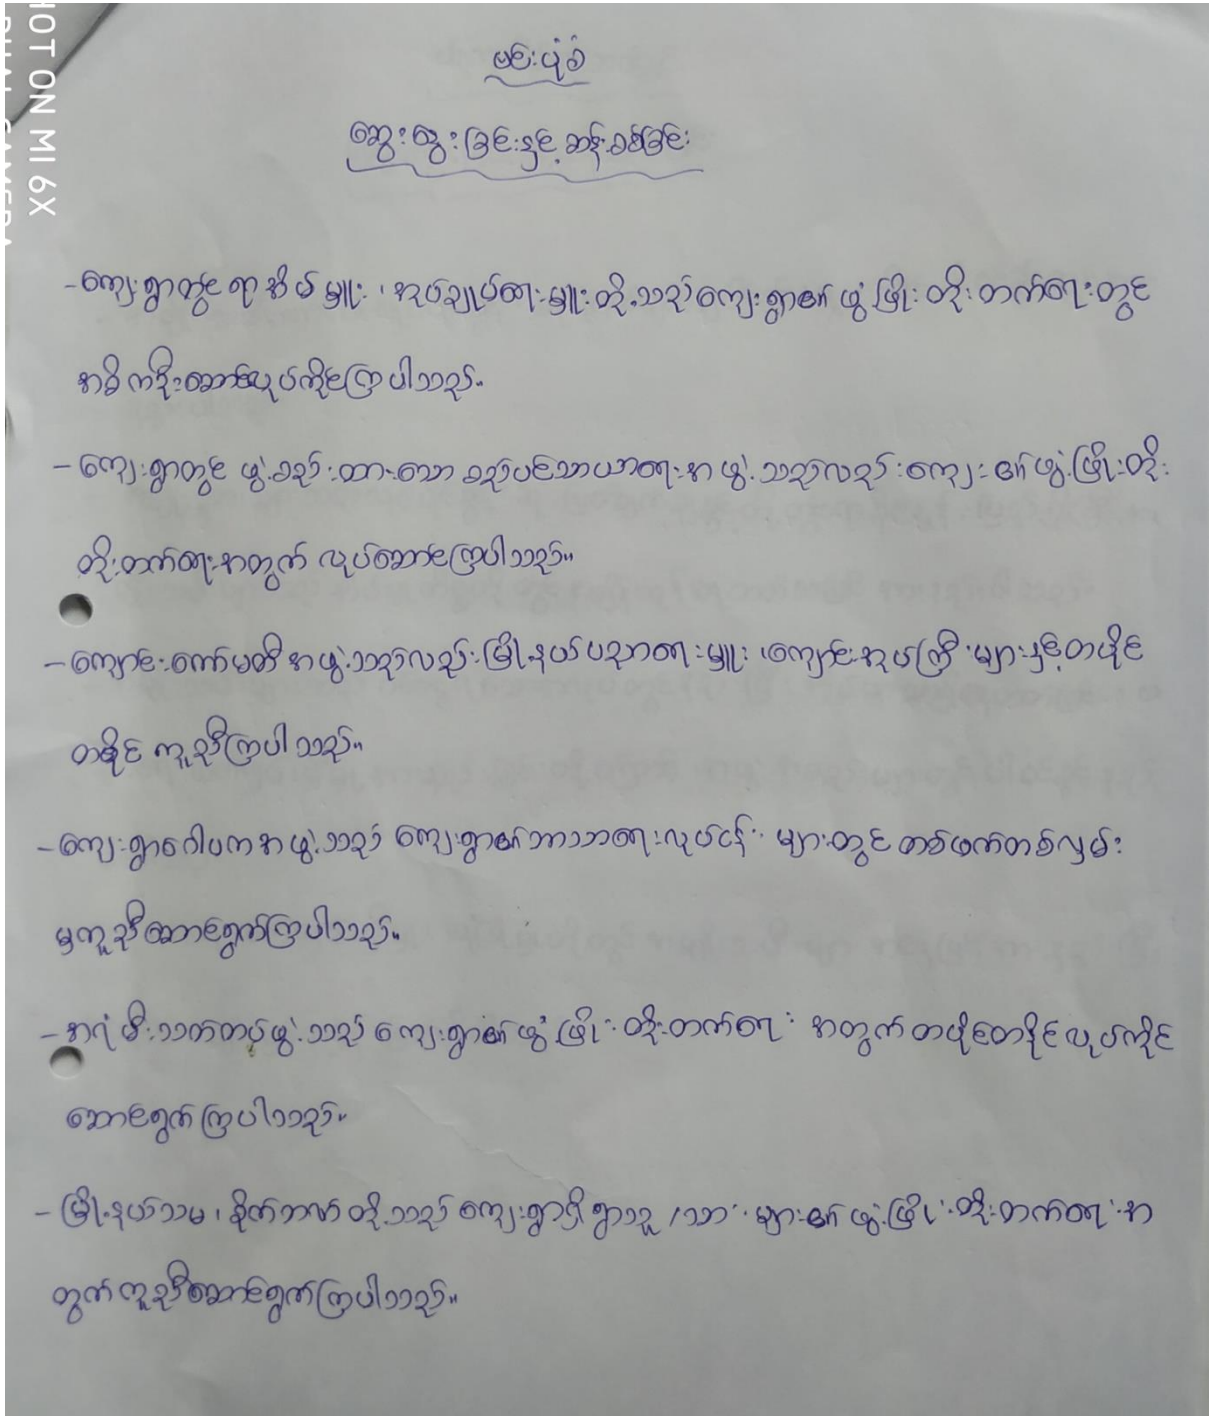 HOT ON MI 6X
DUAL CAMERA
မင်းပုံစံ
ဆွေးနွေးခြင်းနှင့်ဆန်းစစ်ခြင်း
-ကျေးရွာတွင် ရာအိမ်မှူး၊ အုပ်ချုပ်ရေးမှူးတို့သည်ကျေးရွာ၏ ဖွံ့ဖြိုးတိုးတက်ရေးတွင်
အဓိကဦးဆောင်လုပ်ကိုင်ကြပါသည်။
-ကျေးရွာတွင် ဖွဲ့စည်းထားသော စည်ပင်သာယာရေးအဖွဲ့သည်လည်းကျေး၏ဖွံ့ဖြိုးတိုး
တိုးတက်ရေးအတွက် လုပ်ဆောင်ကြပါသည်။
-ကျောင်းကော်မတီအဖွဲ့သည်လည်းမြို့နယ်ပညာရေးမှူး၊ကျောင်းအုပ်ကြီးများနှင့်တပိုင်
တနိုင် ကူညီကြပါသည်။
-ကျေးရွာဂေါပကအဖွဲ့သည် ကျေးရွာ၏ဘာသာရေးလုပ်ငန်းများတွင် တစ်ဖက်တစ်လှမ်း
မှကူညီဆောင်ရွက်ကြပါသည်။
-အရံမီးသတ်တပ်ဖွဲ့သည် ကျေးရွာ၏ဖွံ့ဖြိုးတိုးတက်ရေးအတွက် တပိုင်တနိုင်လုပ်ကိုင်
ဆောင်ရွက်ကြပါသည်။
-မြို့နယ်သမ၊ နိုက်ဘဏ်တို့သည် ကျေးရွာရှိရွာသူ/သားများ၏ ဖွံ့ဖြိုးတိုးတက်ရေးအ
တွက်ကူညီဆောင်ရွက်ကြပါသည်။